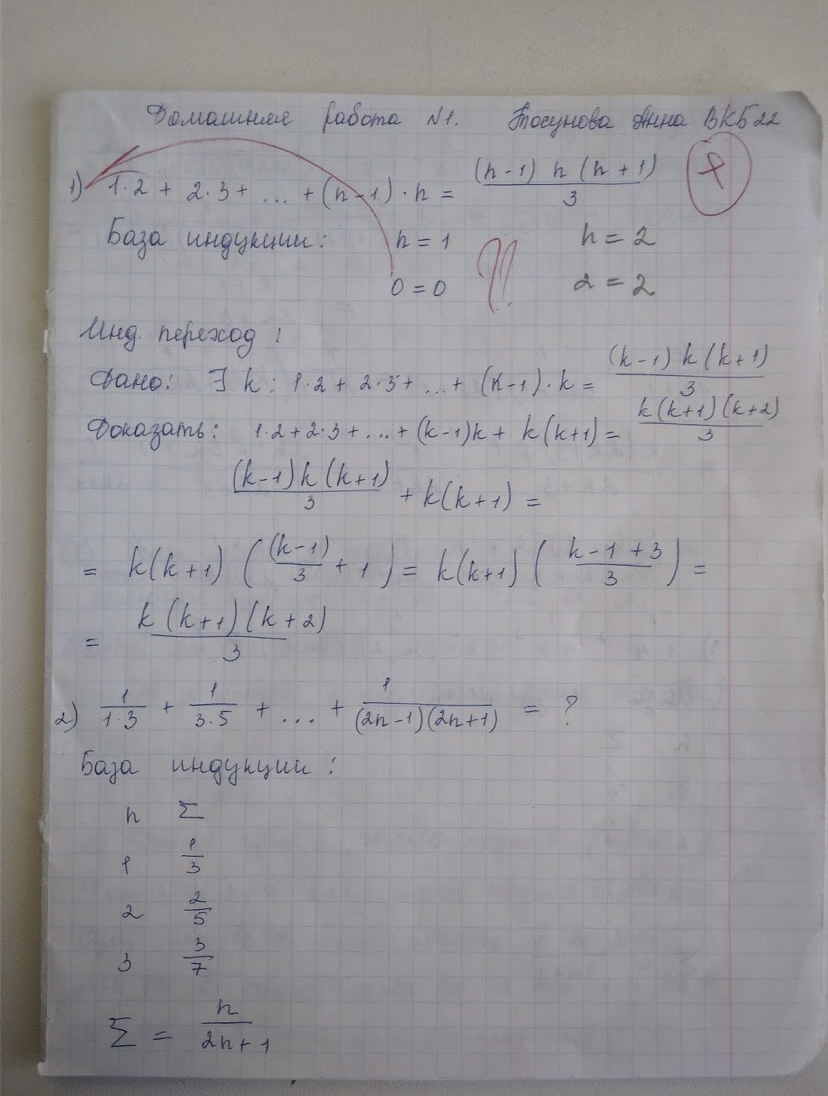 Домашняя работа №1. Тосунова Анна ВКБ22
1) 1·2 + 2·3 + ... + (n-1)·n = (n-1) n (n+1) / 3
База индукции: n = 1 ?! n = 2
0 = 0 2 = 2
Инд. переход:
Дано: ∃ k: 1·2 + 2·3 + ... + (k-1)·k = (k-1) k (k+1) / 3
Доказать: 1·2 + 2·3 + ... + (k-1)k + k(k+1) = k(k+1)(k+2) / 3
(k-1)k(k+1) / 3 + k(k+1) =
= k(k+1) ((k-1) / 3 + 1) = k(k+1) (k-1+3 / 3) =
= k(k+1)(k+2) / 3
2) 1/1·3 + 1/3·5 + ... + 1/(2n-1)(2n+1) = ?
База индукции:
n Σ
1 1/3
2 2/5
3 3/7
Σ = n / 2n+1